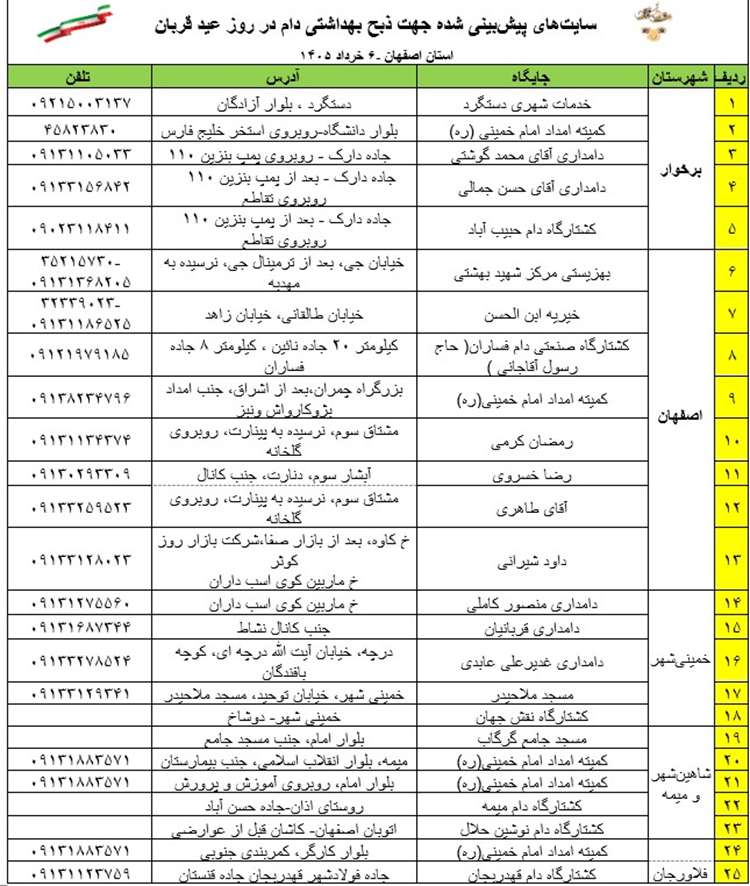 سایت‌های پیش‌بینی شده جهت ذبح بهداشتی دام در روز عید قربان
استان اصفهان -۶ خرداد ۱۴۰۵
ردیف شهرستان جایگاه آدرس تلفن
۱ برخوار خدمات شهری دستگرد دستگرد ، بلوار آزادگان ۰۹۲۱۵۰۰۳۱۳۷
۲ کمیته امداد امام خمینی (ره) بلوار دانشگاه-روبروی استخر خلیج فارس ۴۵۸۲۳۸۳۰
۳ دامداری آقای محمد گوشتی جاده دارک - روبروی پمپ بنزین ۱۱۰ ۰۹۱۳۱۱۰۵۰۳۳
۴ دامداری آقای حسن جمالی جاده دارک - بعد از پمپ بنزین ۱۱۰ ۰۹۱۳۳۱۵۶۸۴۲
روبروی تقاطع
۵ کشتارگاه دام حبیب آباد جاده دارک - بعد از پمپ بنزین ۱۱۰ ۰۹۰۲۳۱۱۸۴۱۱
روبروی تقاطع
۶ اصفهان بهزیستی مرکز شهید بهشتی خیابان جی، بعد از ترمینال جی، نرسیده به ۳۵۲۱۵۷۳۰-
مهدیه ۰۹۱۳۱۳۶۸۲۰۵
۷ خیریه ابن الحسن خیابان طالقانی، خیابان زاهد ۳۲۳۳۹۰۲۳-
۰۹۱۳۱۱۸۶۵۲۵
۸ کشتارگاه صنعتی دام فساران( حاج کیلومتر ۲۰ جاده نائین ، کیلومتر ۸ جاده ۰۹۱۲۱۹۷۹۱۸۵
رسول آقاجانی ) فساران
۹ کمیته امداد امام خمینی(ره) بزرگراه چمران،بعد از اشراق، جنب امداد ۰۹۱۳۸۲۳۴۷۹۶
پژوکارواش ونیز
۱۰ رمضان کرمی مشتاق سوم، نرسیده به پینارت، روبروی ۰۹۱۳۱۱۳۴۳۷۴
گلخانه
۱۱ رضا خسروی آبشار سوم، دنارت، جنب کانال ۰۹۱۳۰۲۹۳۳۰۹
۱۲ آقای طاهری مشتاق سوم، نرسیده به پینارت، روبروی ۰۹۱۳۳۲۵۹۵۲۳
گلخانه
۱۳ داود شیرانی خ کاوه، بعد از بازار صفا،شرکت بازار روز ۰۹۱۳۳۱۲۸۰۲۳
کوثر
خ ماربین کوی اسب داران
۱۴ خمینی‌شهر دامداری منصور کاملی خ ماربین کوی اسب داران ۰۹۱۳۱۲۷۵۵۶۰
۱۵ دامداری قربانیان جنب کانال نشاط ۰۹۱۳۱۶۸۷۳۴۴
۱۶ دامداری غدیرعلی عابدی درچه، خیابان آیت الله درچه ای، کوچه ۰۹۱۳۳۲۷۸۵۲۴
بافندگان
۱۷ مسجد ملاحیدر خمینی شهر، خیابان توحید، مسجد ملاحیدر ۰۹۱۳۳۱۲۹۳۴۱
۱۸ کشتارگاه نقش جهان خمینی شهر- دوشاخ
۱۹ شاهین‌شهر و میمه مسجد جامع گرگاب بلوار امام، جنب مسجد جامع
۲۰ کمیته امداد امام خمینی(ره) میمه، بلوار انقلاب اسلامی، جنب بیمارستان ۰۹۱۳۱۸۸۳۵۷۱
۲۱ کمیته امداد امام خمینی(ره) بلوار امام، روبروی آموزش و پرورش ۰۹۱۳۱۸۸۳۵۷۱
۲۲ کشتارگاه دام میمه روستای اذان-جاده حسن آباد
۲۳ کشتارگاه دام نوشین حلال اتوبان اصفهان- کاشان قبل از عوارضی
۲۴ کمیته امداد امام خمینی(ره) بلوار کارگر، کمربندی جنوبی ۰۹۱۳۱۸۸۳۵۷۱
۲۵ فلاورجان کشتارگاه دام قهدریجان جاده فولادشهر قهدریجان جاده قنستان ۰۹۱۳۱۱۲۳۷۵۹